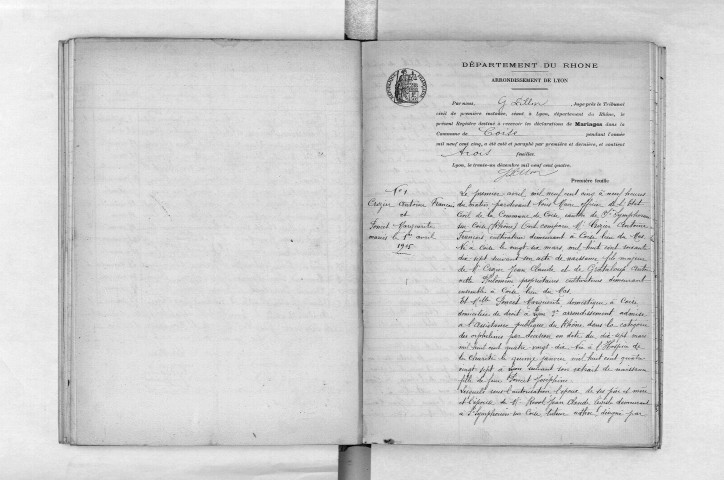 DÉPARTEMENT DU RHONE
ARRONDISSEMENT DE LYON
Par nous, Juge près le Tribunal
civil de première instance, séant à Lyon, département du Rhône, le
présent Registre destiné à recevoir les déclarations de Mariages dans la
Commune de Coise pendant l'année
mil neuf cent cinq, a été coté et paraphé par première et dernière, et contient
trois feuillets.
Lyon, le trente-un décembre mil neuf cent quatre.
Première feuille
No 1
Crozier Antoine François
et
Poncet Marguerite
mariés le 1er avril
1905
Le premier avril mil neuf cent cinq à neuf heures
du matin pardevant Nous Maire officier de l'Etat
Civil de la Commune de Coise, canton de St Symphorien
sur Coise (Rhône) sont comparus Mr Crozier Antoine
François cultivateur demeurant à Coise lieu du Mas
Né à Coise le vingt six mars mil huit cent soixante
dix sept suivant son acte de naissance fils majeur
de Mr Crozier Jean Claude et de Grataloup
Philomène propriétaires cultivateurs demeurant
ensemble à Coise lieu du Mas.
Et Mlle Poncet Marguerite domestique à Coise
domiciliée de droit à Lyon 2e arrondissement admise
à l'Assistance publique du Rhône dans la catégorie
des orphelins par décision en date du dix sept mars
mil huit cent quatre vingt dix Née à l'Hospice de
la Charité le quinze janvier mil huit cent quatre
vingt sept à Lyon suivant son extrait de naissance
fille de feue Poncet Joséphine
Lesquels sous l'autorisation l'époux de ses père et mère
et l'épouse de Mr Jean Claude demeurant
à St Symphorien sur Coise tuteur désigné par